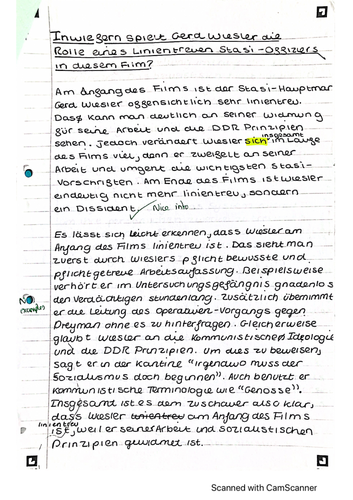 Inwiefern spielt Gerd Wiesler die
Rolle eines linientreuen Stasi-Offiziers
in diesem Film?
Am Anfang des Films ist der Stasi-Hauptmann
Gerd Wiesler offensichtlich sehr linientreu.
Dass kann man deutlich an seiner Widmung
für seine Arbeit und die DDR Prinzipien
insgesamt
sehen. Jedoch verändert Wiesler sich im Laufe
des Films viel, denn er zweifelt an seiner
Arbeit und umgent die wichtigsten Stasi-
Vorschriften. Am Ende des Films ist Wiesler
eindeutig nicht mehr linientreu, sondern
ein Dissident. ✓ Nice info
Es lässt sich leicht erkennen, dass Wiesler am
Anfang des Films linientreu ist. Das sieht man
zuerst durch Wieslers pflichtbewusste und
pflichtgetreue Arbeitsauffassung. Beispielsweise
verhört er im Untersuchungsgefängnis gnadenlos
den Verdächtigen stundenlang. Zusätzlich übernimmt
er die Leitung des Operativen-Vorgangs gegen
Dreyman ohne es zu hinterfragen. Gleicherweise
glaubt Wiesler an die kommunistische Ideologie
und die DDR Prinzipien. Um dies zu beweisen,
sagt er in der Kantine "irgendwo muss der
Sozialismus doch beginnen". Auch benutzt er
kommunistische Terminologie wie "Genosse".
Insgesamt ist es dem Zuschauer also klar,
dass Wiesler linientreu am Anfang des Films
linientreu
ist, weil er seiner Arbeit und sozialistischen
Prinzipien gewidmet ist.
Scanned with CamScanner